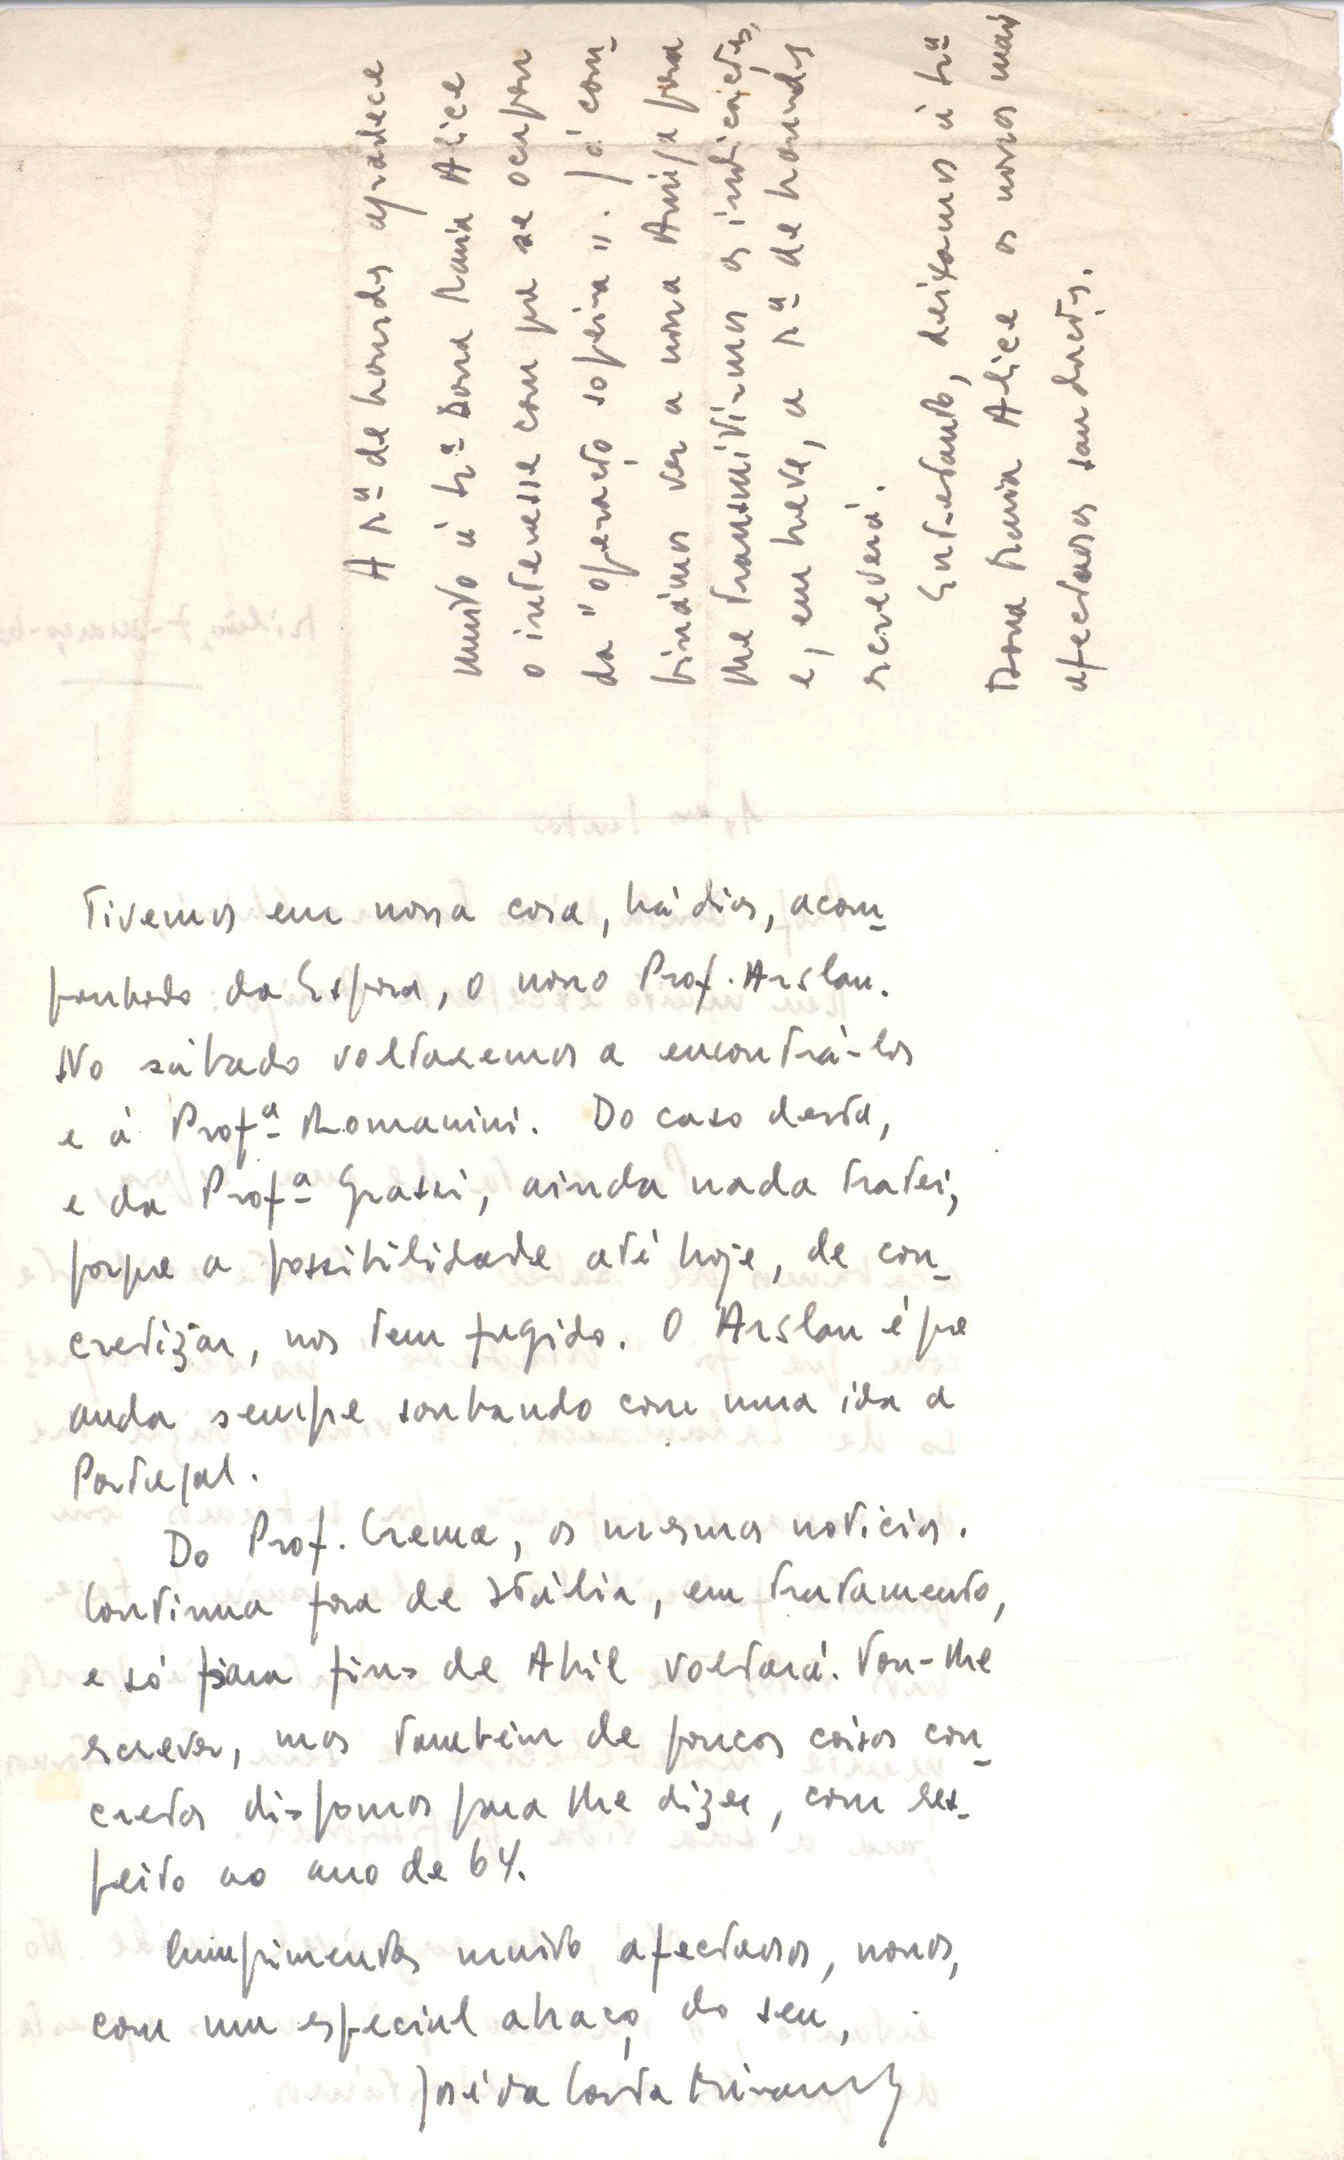 Tivemos em nossa casa, há dias, acom-
panhado da Esposa, o nosso Prof. Arslan.
No sábado voltaremos a encontrá-los
e à Profª Romanini. Do caso desta,
e da Profª Grassi, ainda nada tratei,
porque a possibilidade até hoje, de con-
cretizar, nos tem fugido. O Arslan é que
anda sempre sonhando com uma ida a
Portugal.
Do Prof. Crema, as mesmas noticias.
Continua fora de Itália, em tratamento,
e só para fins de Abril voltará. Vou-lhe
escrever, mas também de poucas coisas con-
cretas dispomos para lhe dizer, com res-
peito ao ano de 64.
Cumprimentos muito afectuosos, nossos,
com um especial abraço do seu,
José da Costa Miranda
A Srª de
agradece
muito à Srª Dona Maria Alice
o interesse com que se ocupou
da "operação sopeira". Já com-
binámos ver a nossa Amiga para
lhe transmitirmos as indicações,
e, em breve, a Srª de
escreverá.
Entretanto, deixamos à Srª
Dona Maria Alice os nossos mais
afectuosos saudações.